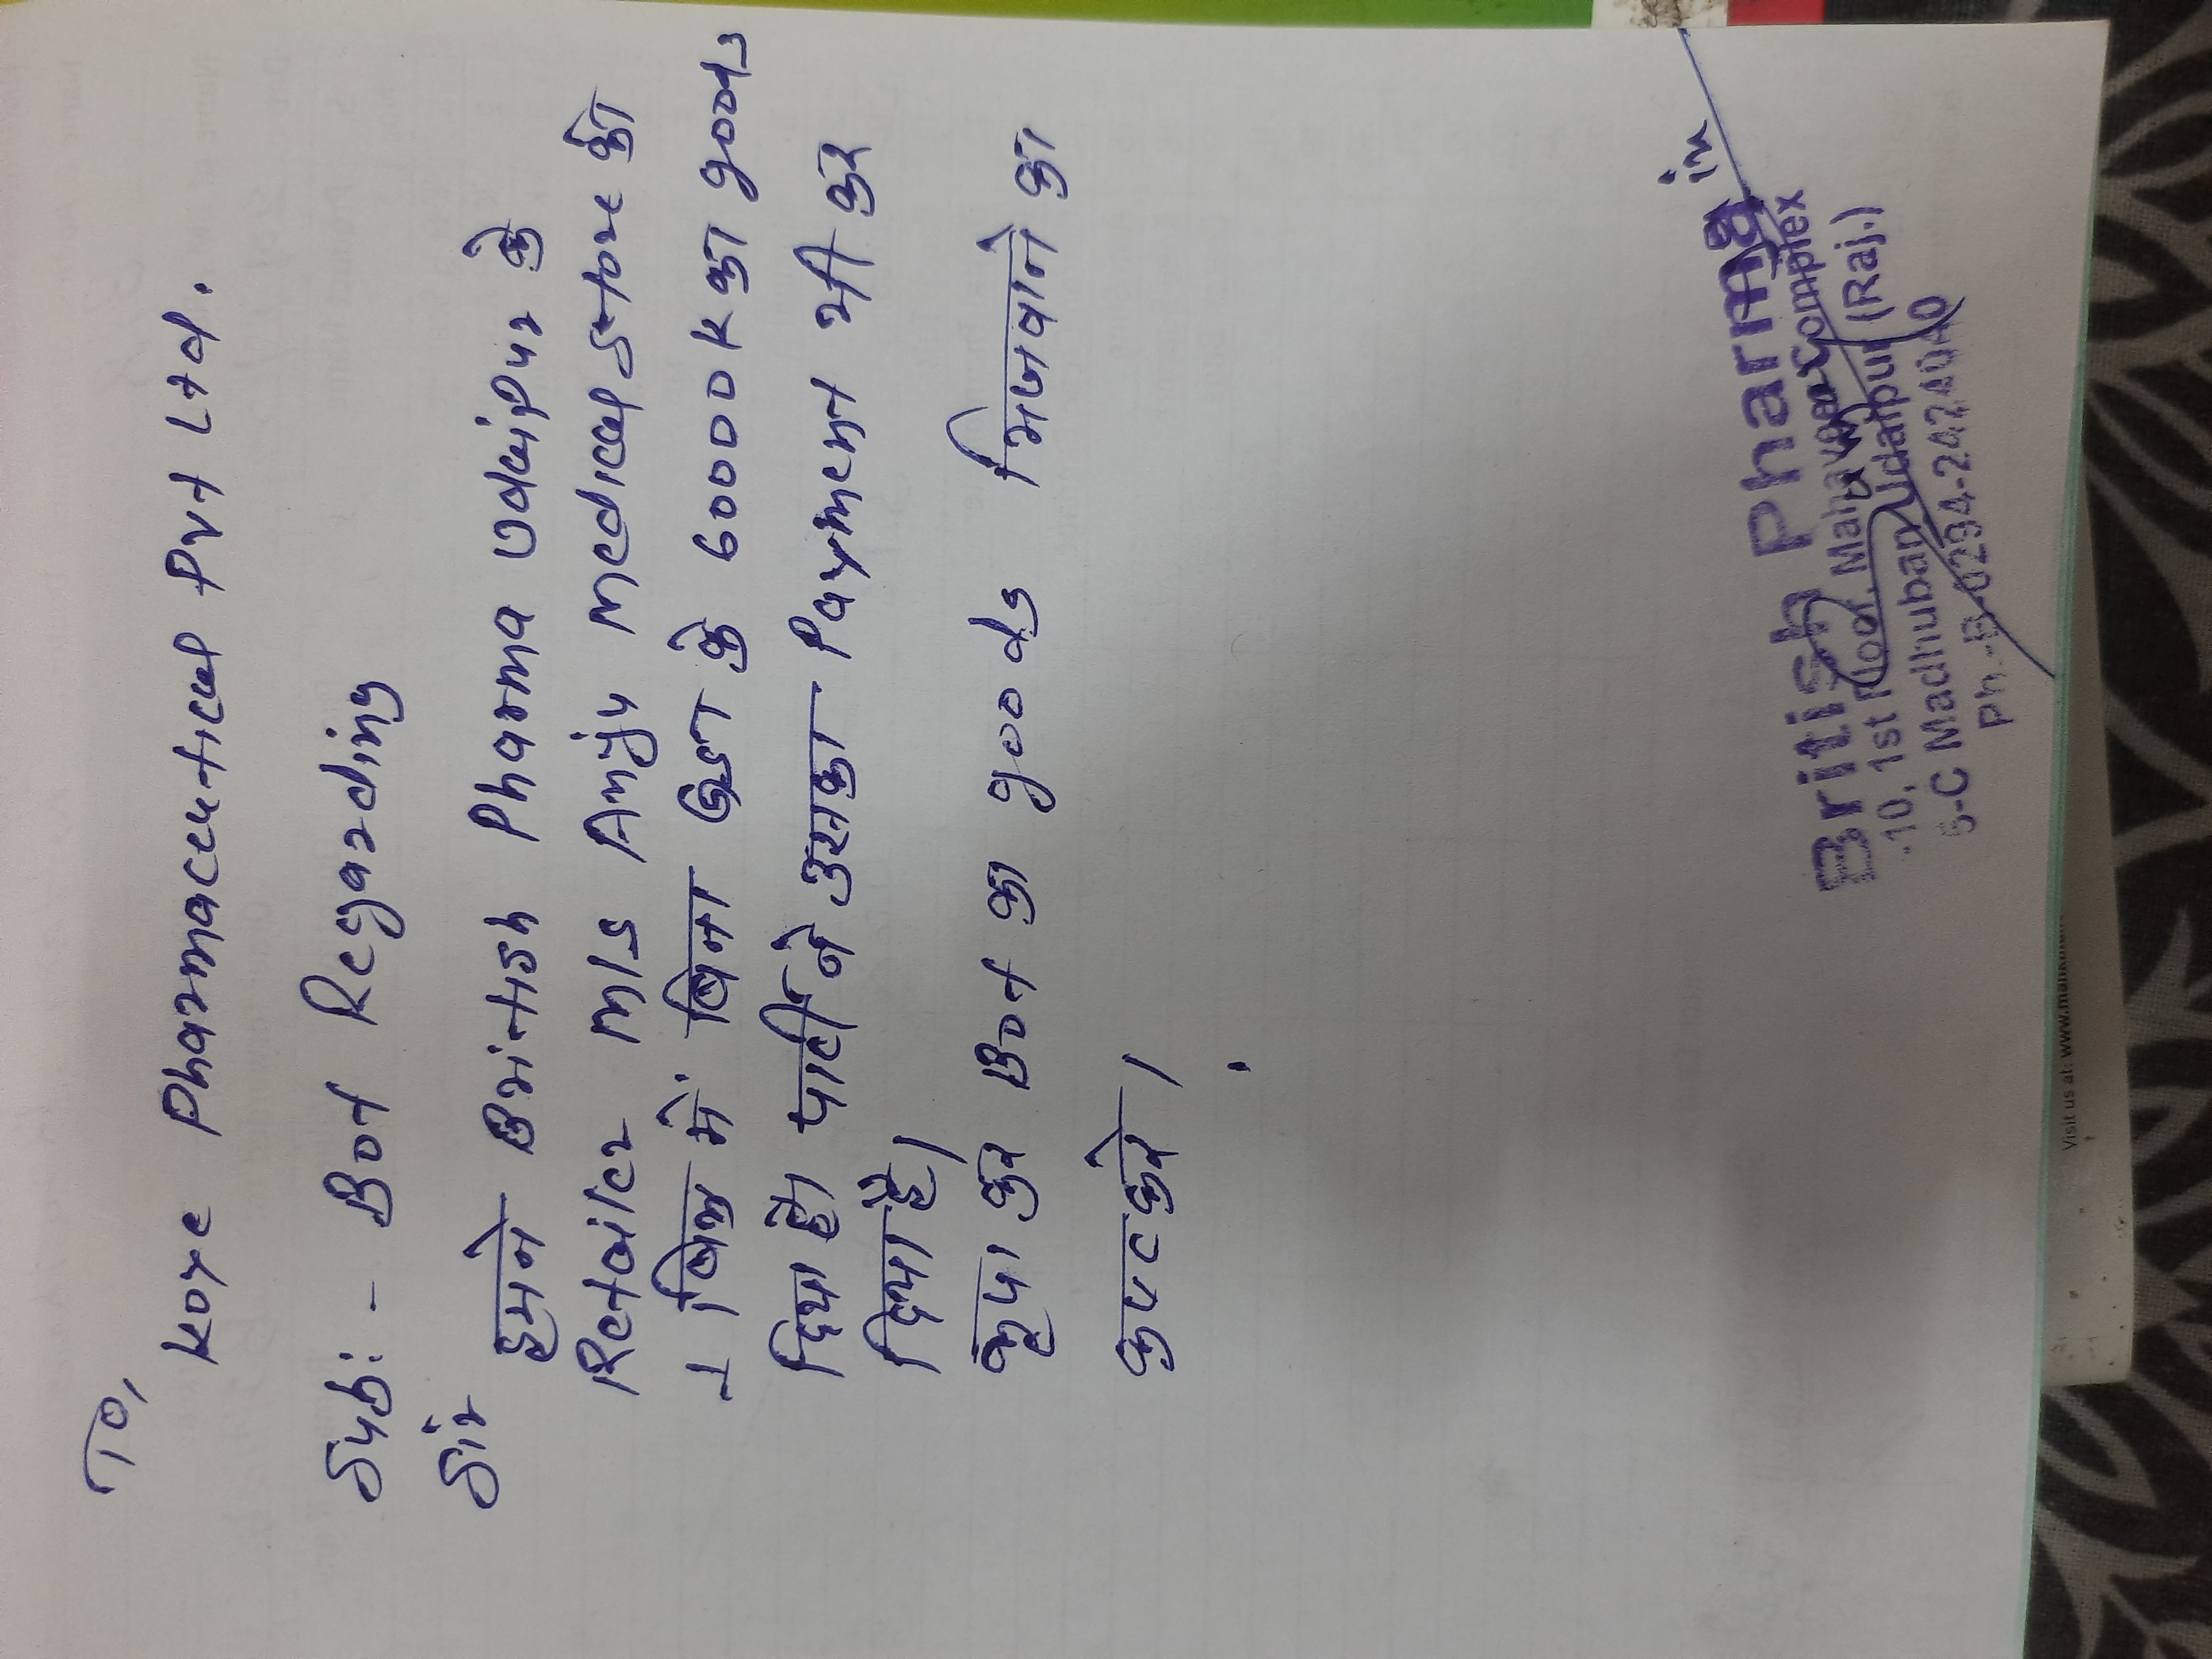 To,
Kore Pharmaceutical Pvt Ltd.
Sub:- Bot Regarding
Sir
हमने British Pharma Udaipur के
Retailer M/s Anju Medical Store को
1 बिल में बिना छूट के 60000 K का goods
दिया है। पार्टी ने उसका Payment भी कर
दिया है।
कृपा कर Bot का goods भिजवाने का
कष्ट करे।
British Pharma
10, 1st Floor, Mahaveer Complex
5-C Madhuban Udaipur (Raj.)
Ph.- 0294-2424040
Visit us at: www.man